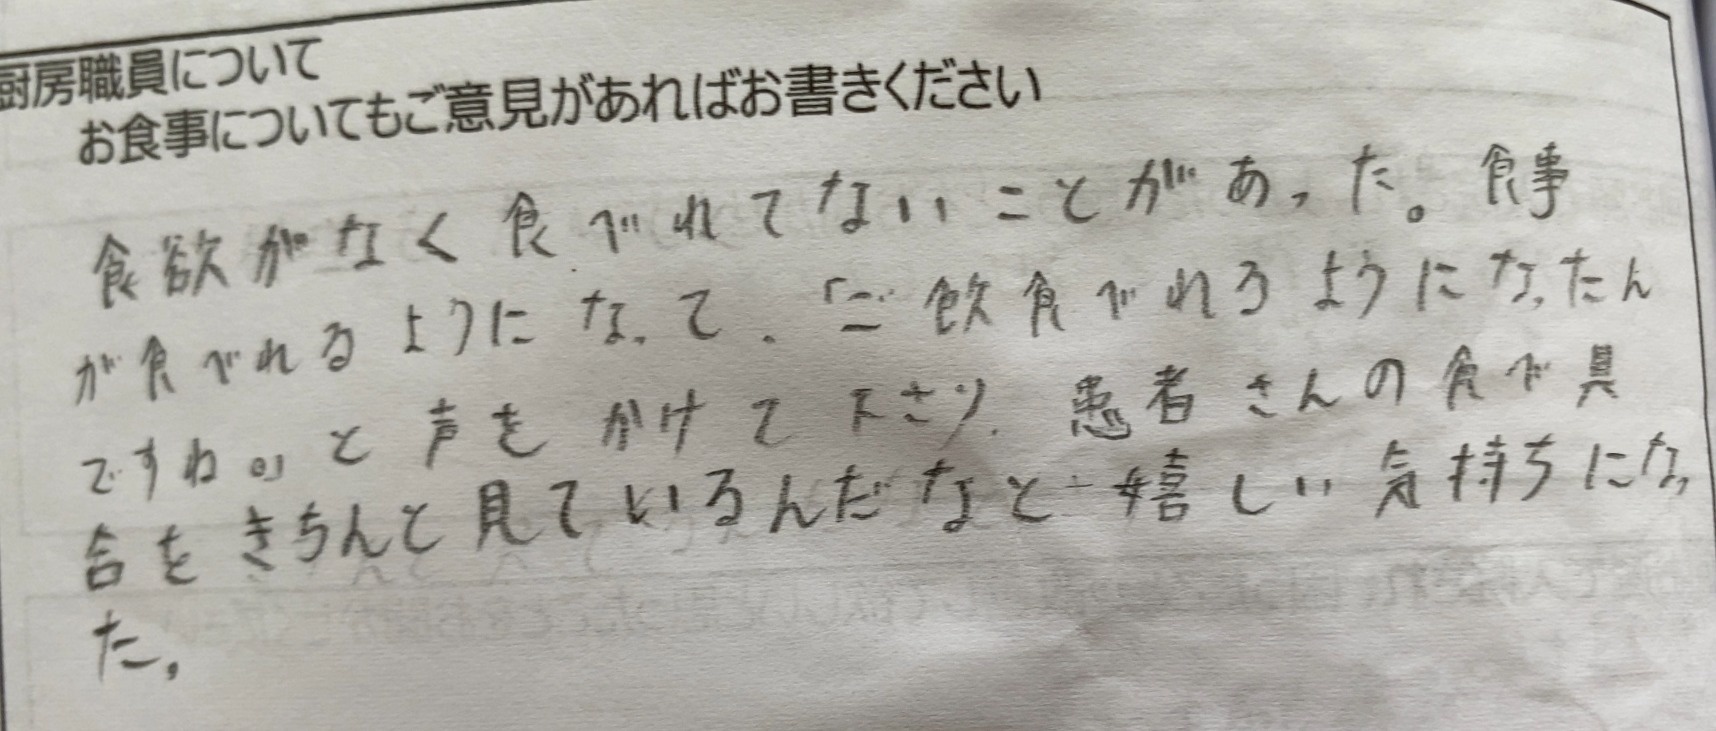 厨房職員について
お食事についてもご意見があればお書きください
食欲がなく食べれてないことがあった。食事
が食べれるようになって、「ご飲食べれるようになったん
ですね。」と声をかけて下さり、患者さんの食べ具
合をきちんと見ているんだなと嬉しい気持ちになっ
た。